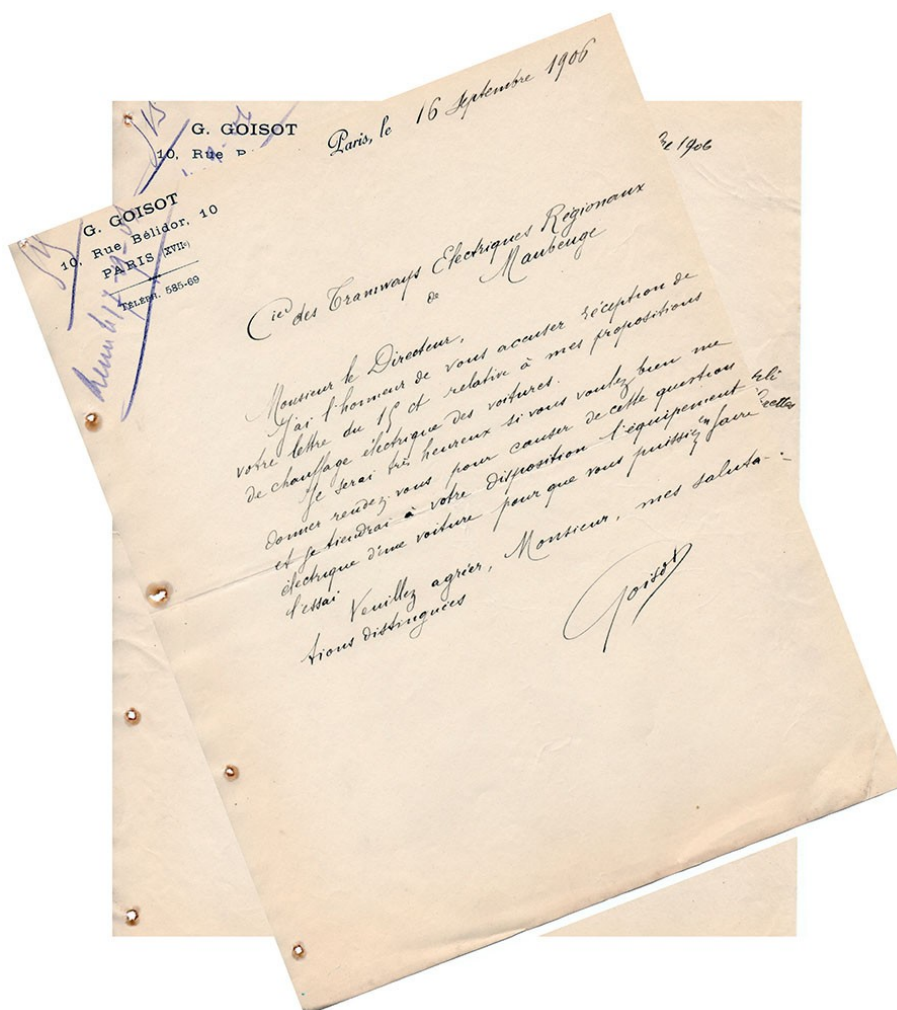 G. GOISOT
10, Rue
re 1906
Paris, le 16 Septembre 1906
G. GOISOT
10, Rue Bélidor, 10
PARIS (XVIIe)
TÉLÉPH. 585-69
Cie des Tramways Electriques Régionaux
de Maubeuge
Monsieur le Directeur,
J'ai l'honneur de vous accuser réception de
votre lettre du 15 ct relative à mes propositions
de chauffage électrique des voitures.
Je serai très heureux si vous voulez bien me
donner rendez-vous pour causer de cette question
et je tiendrai à votre disposition l'équipement
électrique d'une voiture pour que vous puissiez en faire
l'essai.
Veuillez agréer, Monsieur, mes saluta-
tions distinguées
Goisot